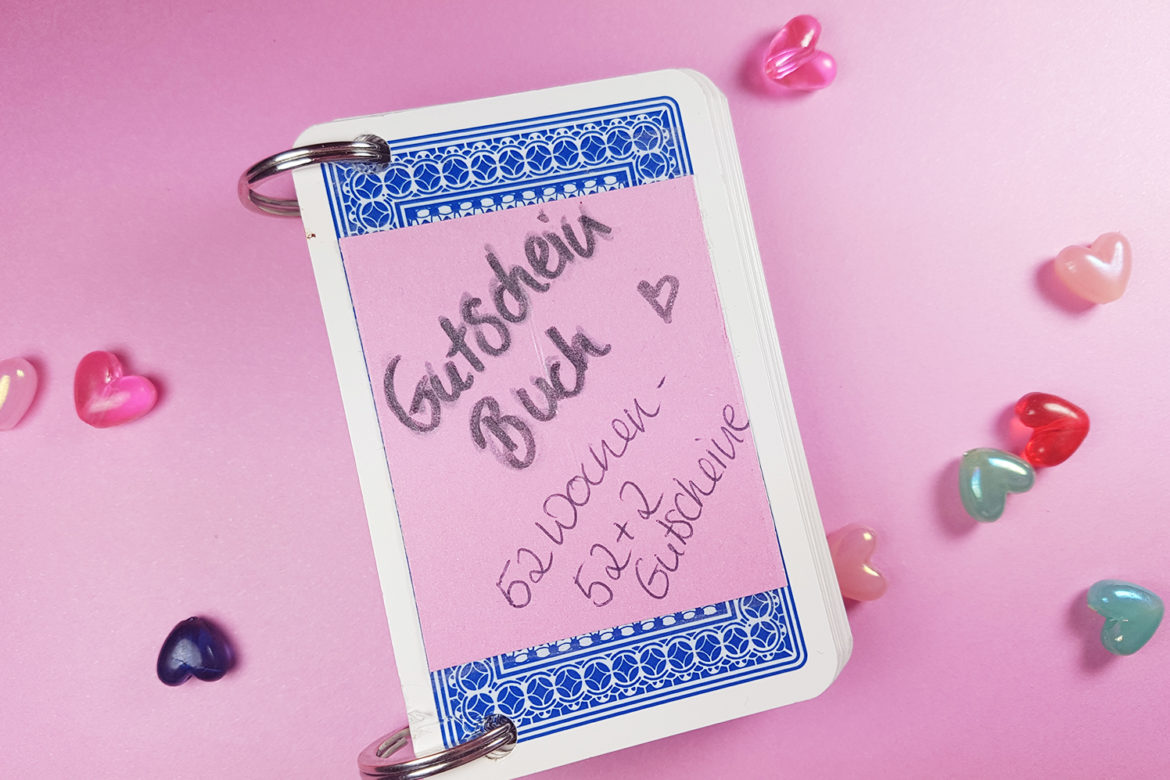 Gutschein
Buch
52 Wochen -
52 + 2
Gutscheine